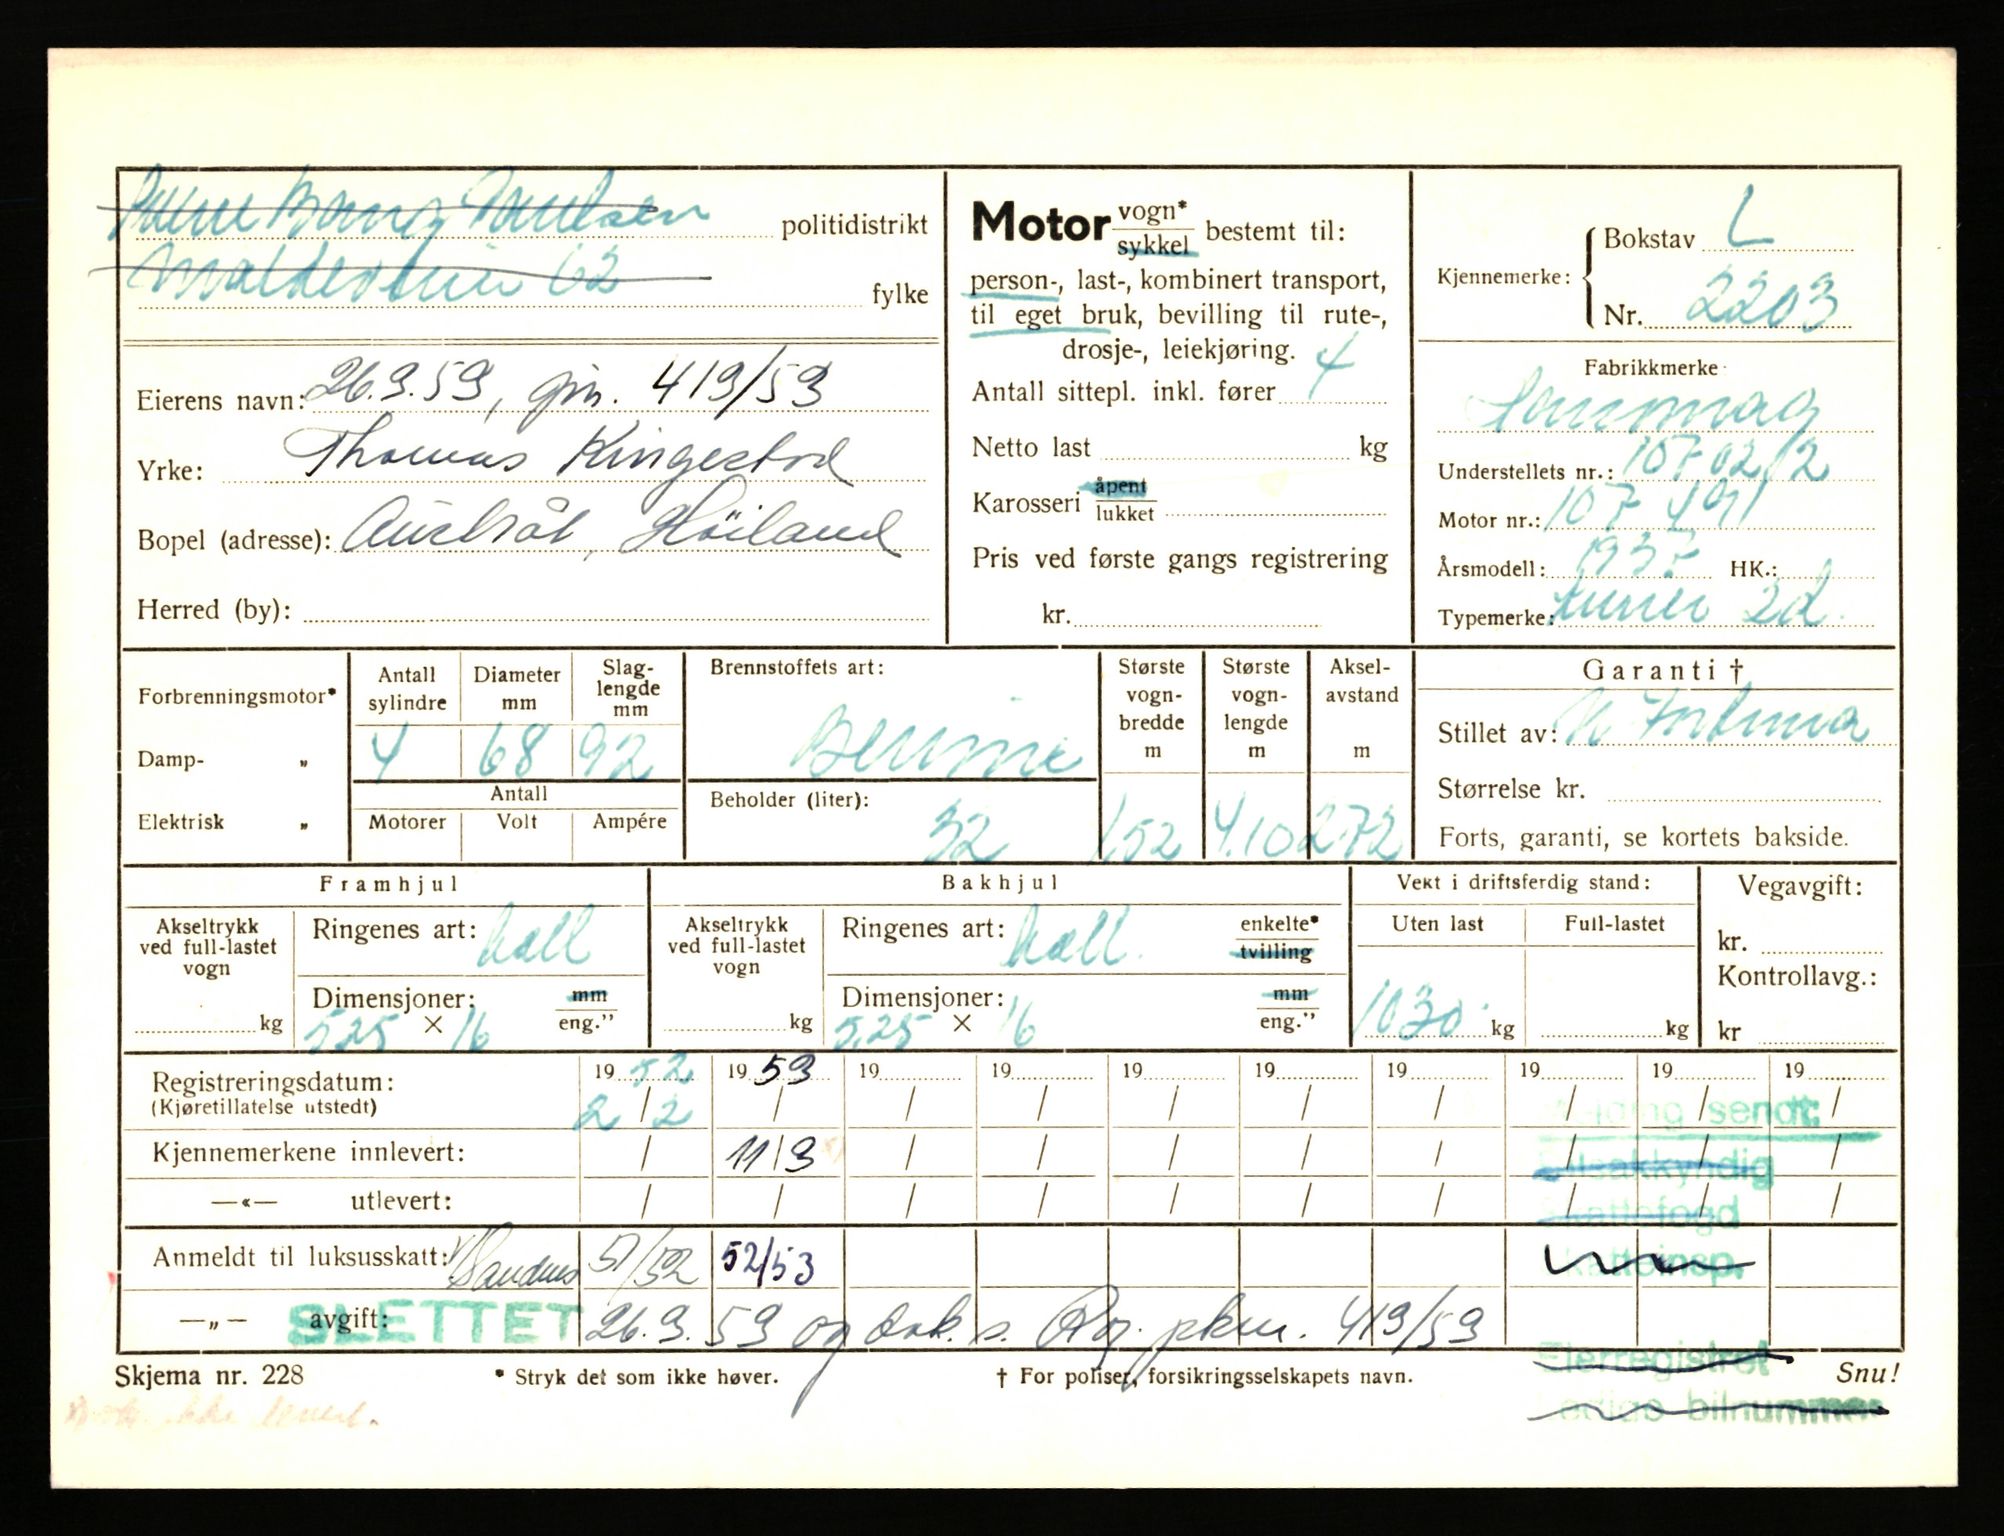 politidistrikt
62
fylke
Eierens navn: 26.9.59, 419/59
Yrke: Thomas Kingestad
Bopel (adresse): Austråt, Höiland
Herred (by):
Motor vogn* sykkel bestemt til:
person-, last-, kombinert transport,
til eget bruk, bevilling til rute-,
drosje-, leiekjøring.
Antall sittepl. inkl. fører 4
Netto last kg
Karosseri åpent lukket
Pris ved første gangs registrering
kr.
Kjennemerke: Bokstav L
Nr. 2203
Fabrikkmerke
Understellets nr.:
Motor nr.: 107 491
Årsmodell: 1937 HK.:
Typemerke: 2d.
Forbrenningsmotor*
Damp- „
Elektrisk „
Antall sylindre
Diameter mm
Slag-lengde mm
4 68 92
Antall
Motorer Volt Ampére
Brennstoffets art:
Bensin
Beholder (liter):
32
Største vogn-bredde m
1,52
Største vogn-lengde m
4.10
Aksel-avstand m
272
Garanti †
Stillet av:
Størrelse kr.
Forts, garanti, se kortets bakside.
Framhjul
Akseltrykk ved full-lastet vogn
kg
Ringenes art:
Dimensjoner: mm eng.”
525 × 16
Bakhjul
Akseltrykk ved full-lastet vogn
kg
Ringenes art: enkelte* tvilling
Dimensjoner: mm eng.”
5,25 × 16
Vekt i driftsferdig stand:
Uten last Full-lastet
1030 kg kg
Vegavgift:
kr.
Kontrollavg.:
kr
Registreringsdatum: 19 52 19 53 19 19 19 19 19 19 19 19
(Kjøretillatelse utstedt) 2/2 / / / / / / / / /
sendt:
Kjennemerkene innlevert: / 11/9 / / / / / / / /
Bilsakkyndig
—«— utlevert: / / / / / / / / / /
Skattefogd
Anmeldt til luksusskatt: Sandnes 51/52 52/53
Skatteinsp.
—„— avgift: SLETTET 26.9.59 og dok. s. 419/59
Eierregistret
Skjema nr. 228
* Stryk det som ikke høver.
† For poliser, forsikringsselskapets navn.
Snu!
Ledige bilnummer